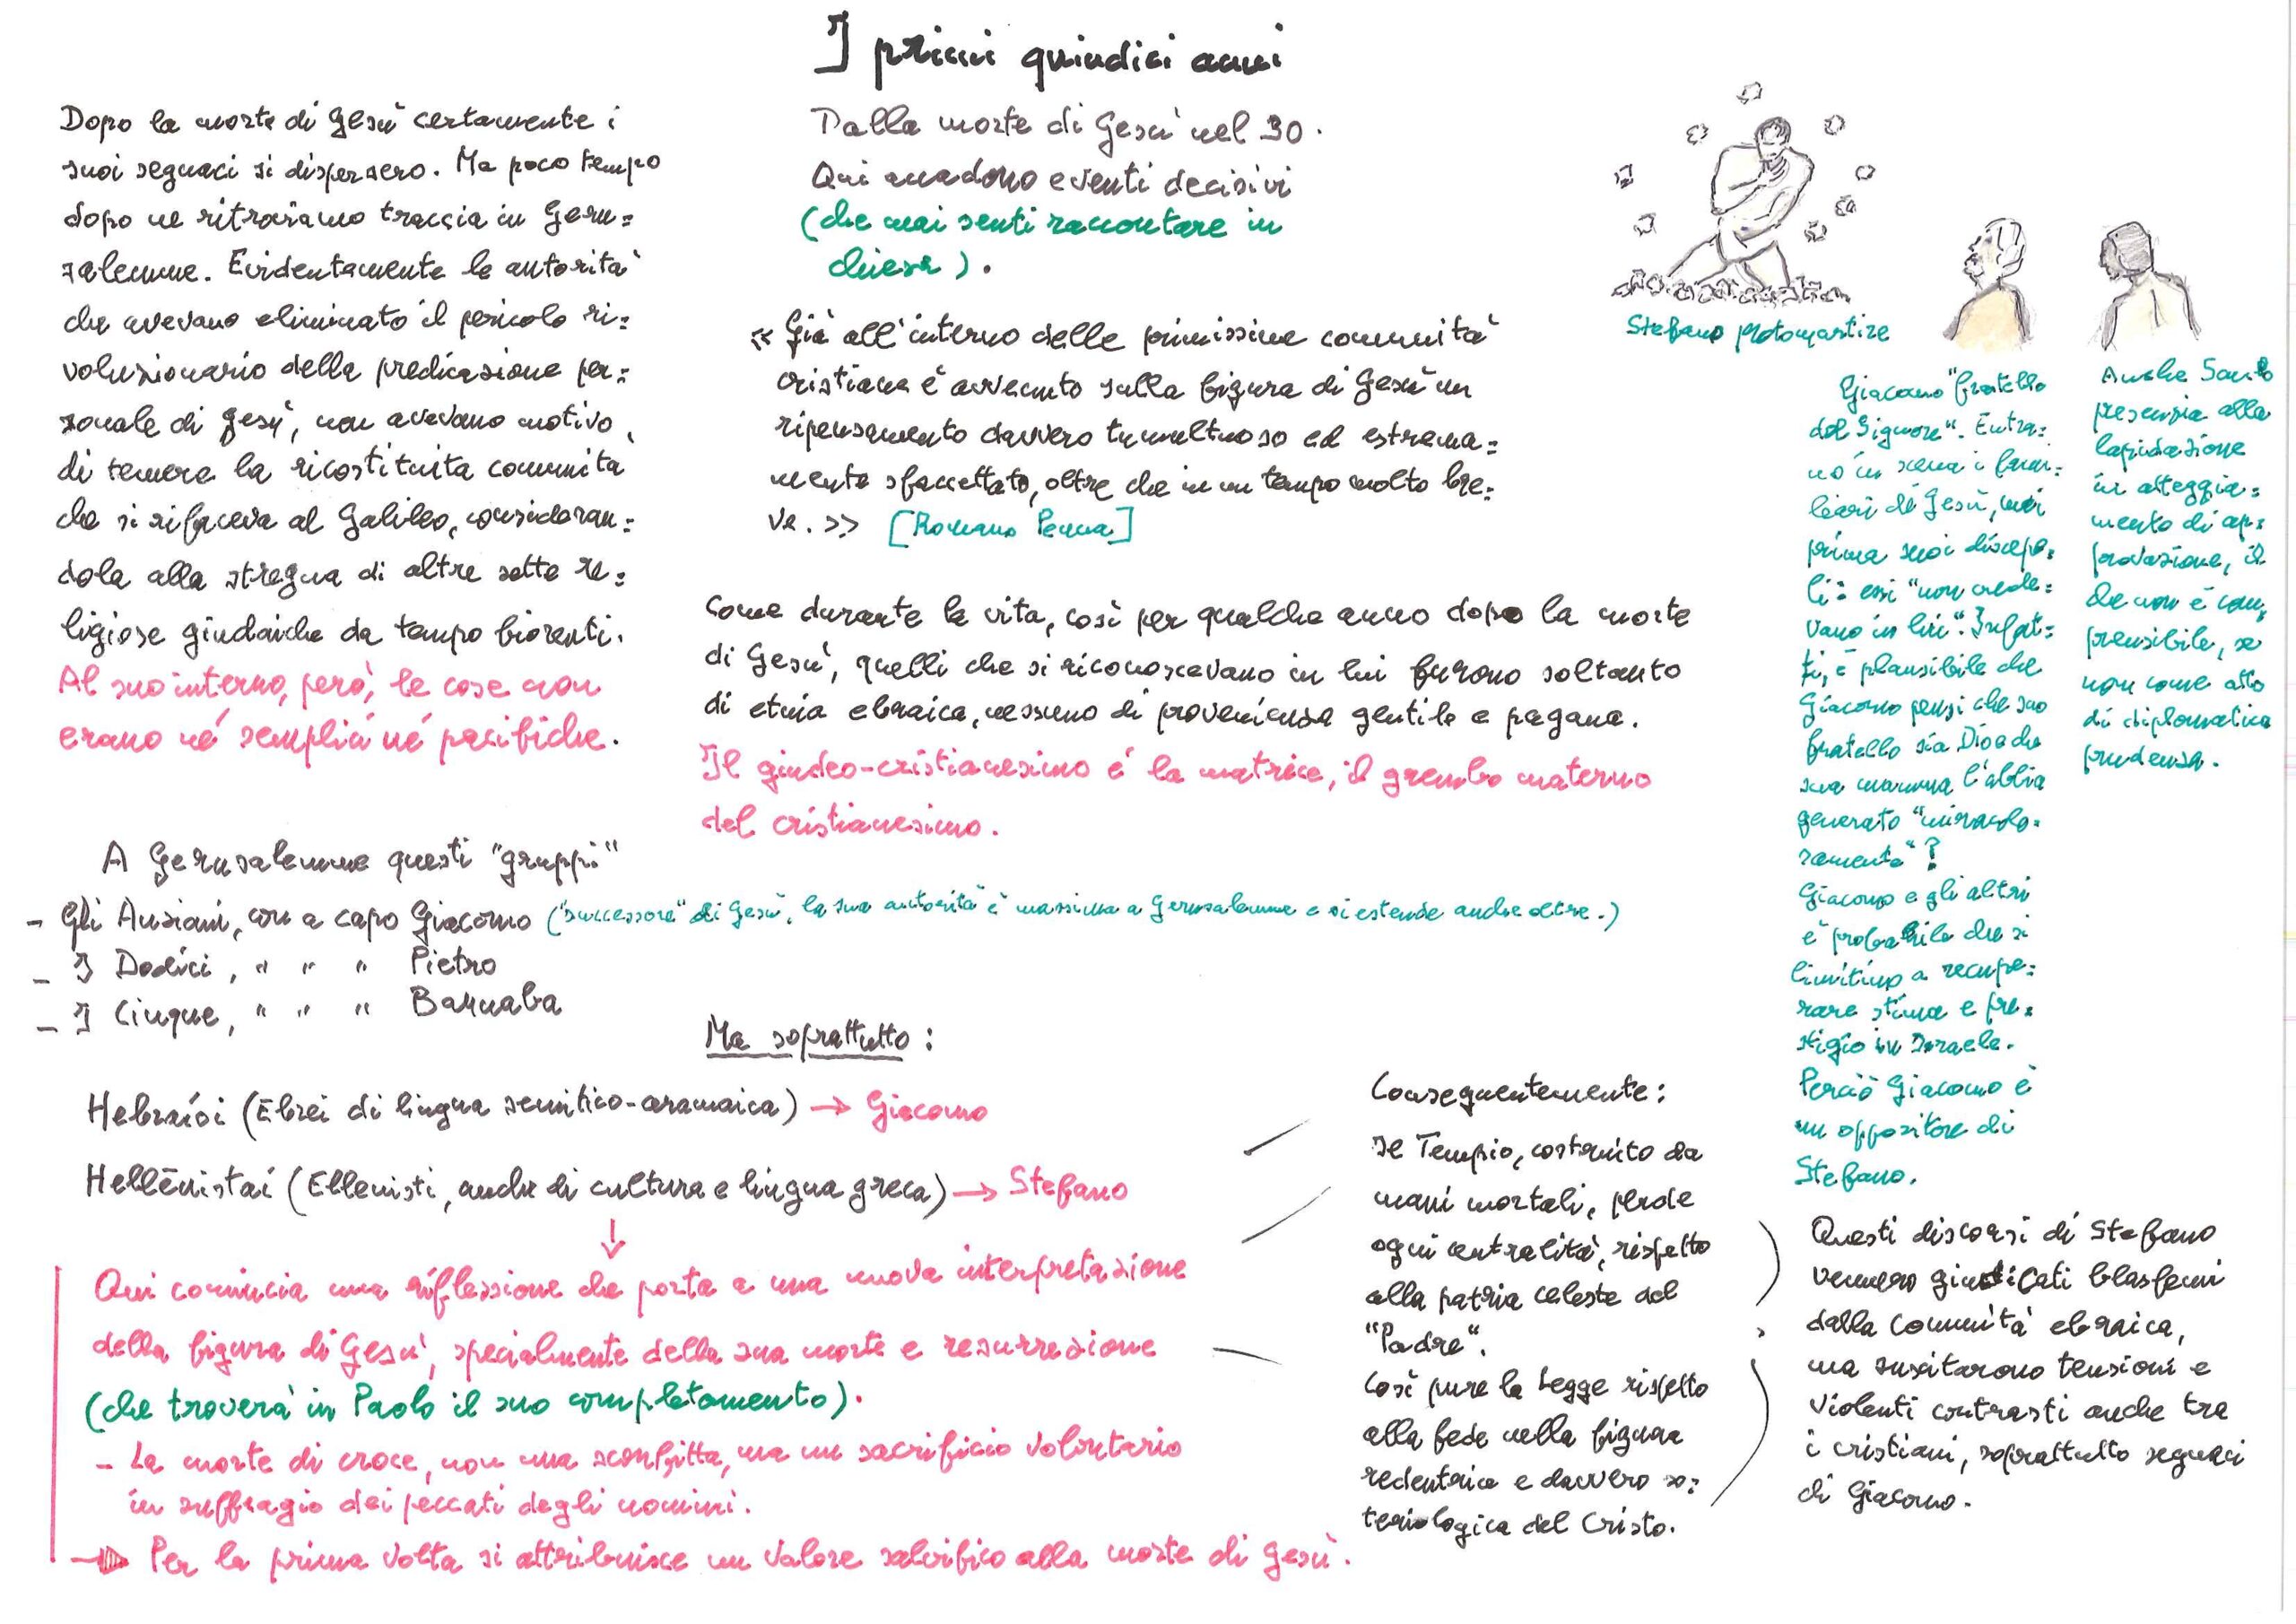 I primi quindici anni
Dopo la morte di Gesù certamente i
suoi seguaci si dispersero. Ma poco tempo
dopo ne ritroviamo traccia in Geru=
salemme. Evidentemente le autorità
che avevano eliminato il pericolo ri=
voluzionario della predicazione per=
sonale di Gesù, non avevano motivo
di temere la ricostituita comunità
che si rifaceva al Galileo, consideran=
dola alla stregua di altre sette re=
ligiose giudaiche da tempo fiorenti.
Al suo interno, però, le cose non
erano né semplici né pacifiche.
Dalla morte di Gesù nel 30.
Qui accadono eventi decisivi
(che mai senti raccontare in
chiesa).
« Già all'interno delle primissime comunità
cristiane è avvenuto sulla figura di Gesù un
ripensamento davvero tumultuoso ed estrema=
mente sfaccettato, oltre che in un tempo molto bre=
ve. >> [Romano Penna]
Come durante la vita, così per qualche anno dopo la morte
di Gesù, quelli che si riconoscevano in lui furono soltanto
di etnia ebraica, nessuno di provenienza gentile e pagana.
Il giudeo-cristianesimo é la matrice, il grembo materno
del cristianesimo.
Stefano protomartire
Giacomo "fratello
del Signore". Entra=
no in scena i fami=
liari di Gesù, mai
prima suoi discepo=
li: essi "non crede=
vano in lui". Infat=
ti, è plausibile che
Giacomo pensi che suo
fratello sia Dio e che
sua mamma l'abbia
generato "miracolo=
samente"?
Giacomo e gli altri
è probabile che si
limitino a recupe=
rare stima e pre=
stigio in Israele.
Perciò Giacomo è
un oppositore di
Stefano.
Anche Saulo
presenzia alla
lapidazione
in atteggia=
mento di ap=
provazione, il
che non è com=
prensibile, se
non come atto
di diplomatica
prudenza.
A Gerusalemme questi "gruppi"
- Gli Anziani, con a capo Giacomo ("successore" di Gesù, la sua autorità è massima a Gerusalemme e si estende anche oltre.)
- I Dodici, " " " Pietro
- I Cinque, " " " Barnaba
Ma soprattutto:
Hebraíoi (Ebrei di lingua semitico-aramaica) → Giacomo
Hellēnistaí (Ellenisti, anche di cultura e lingua greca) → Stefano
↓
Qui comincia una riflessione che porta a una nuova interpretazione
della figura di Gesù, specialmente della sua morte e resurrezione
(che troverà in Paolo il suo completamento).
- La morte di croce, non una sconfitta, ma un sacrificio volontario
in suffragio dei peccati degli uomini.
→ Per la prima volta si attribuisce un valore salvifico alla morte di Gesù.
Conseguentemente:
Il Tempio, costruito da
mani mortali, perde
ogni centralità, rispetto
alla patria celeste del
"Padre".
Così pure la Legge rispetto
alla fede nella figura
redentrice e davvero so=
teriologica del Cristo.
Questi discorsi di Stefano
vennero giudicati blasfemi
dalla comunità ebraica,
ma suscitarono tensioni e
violenti contrasti anche tra
i cristiani, soprattutto seguaci
di Giacomo.